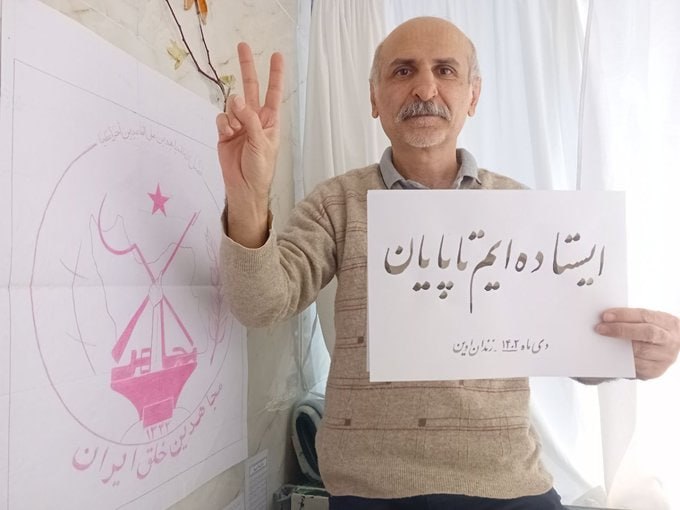 ایستاده‌ایم تا پایان
دی ماه ۱۴۰۲ - زندان اوین
۱۳۴۴
مجاهدین خلق ایران